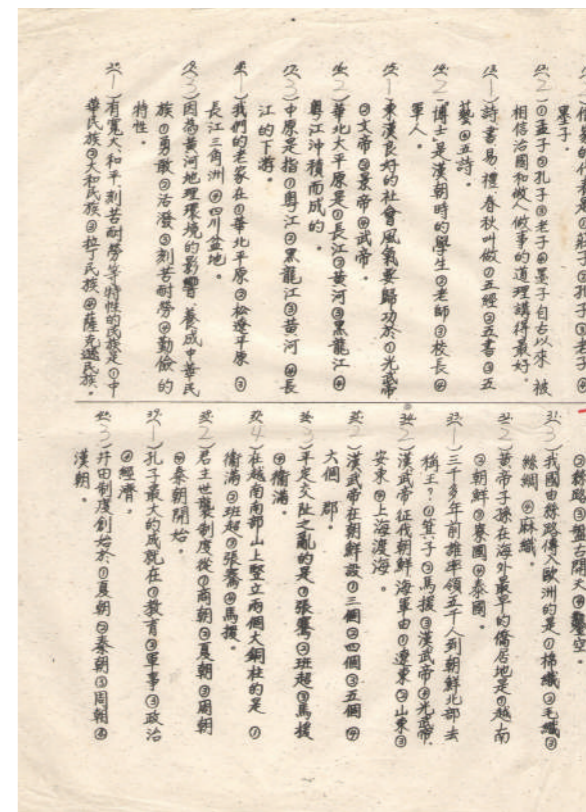 儒家的代表是①莊子②孔子③老子④
墨子。
12.(2)①孟子②孔子③老子④墨子自古以來被
相信治國和做人做事的道理講得最好。
13.(1)詩書易禮春秋叫做①五經②五書③五
藝④五詩。
14.(2)博士是漢朝時的學生②老師③校長④
軍人。
15.(1)東漢良好的社會風氣要歸功於①光武帝
②文帝③景帝④武帝。
16.(2)華北大平原是①長江②黃河③黑龍江④
粵江沖積而成的。
17.(3)中原是指①粵江②黑龍江③黃河④長
江的下游。
18.(1)我們的老家在①華北平原②松遼平原③
長江三角洲④四川盆地。
19.(3)因為黃河地理環境的影響,養成中華民
族①勇敢②活潑③刻苦耐勞④勤儉的
特性。
20.(1)有寬大、和平、刻苦耐勞等特性的民族是①中
華民族②大和民族③拉丁民族④薩克遜民族。
②絲路③盤古開天④鑿空。
31.(3)我國由絲路傳入歐洲的是①棉織②毛織③
絲綢④麻織。
32.(2)黃帝子孫在海外最早的僑居地是①越南
②朝鮮③寮國④泰國。
33.(1)三千多年前誰率領五千人到朝鮮北部去
稱王?①箕子②馬援③漢武帝④光武帝。
34.(2)漢武帝征伐朝鮮,海軍由①遼東②山東③
安東④上海渡海。
35.(2)漢武帝在朝鮮設①三個②四個③五個④
大個 郡。
36.(3)平定交阯之亂的是①張騫②班超③馬援
④衛滿。
37.(4)在越南南部山上豎立兩個大銅柱的是①
衛滿②班超③張騫④馬援。
38.(2)君主世襲制度從①商朝②夏朝③周朝
④秦朝開始。
39.(1)孔子最大的成就在①教育②軍事③政治
④經濟。
40.(3)井田制度創始於①夏朝②秦朝③周朝④
漢朝。